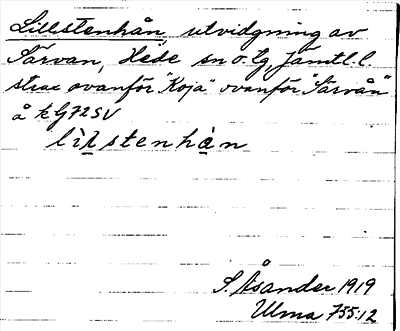 Lillstenhån utvidgning av
Särvan, Hede sn o. tg, Jämtl. l.
strax ovanför "Koja" ovanför "Särvån"
å kG 72 SV
lìlstenhàn
S. Åsander 1919
Ulma 755:12